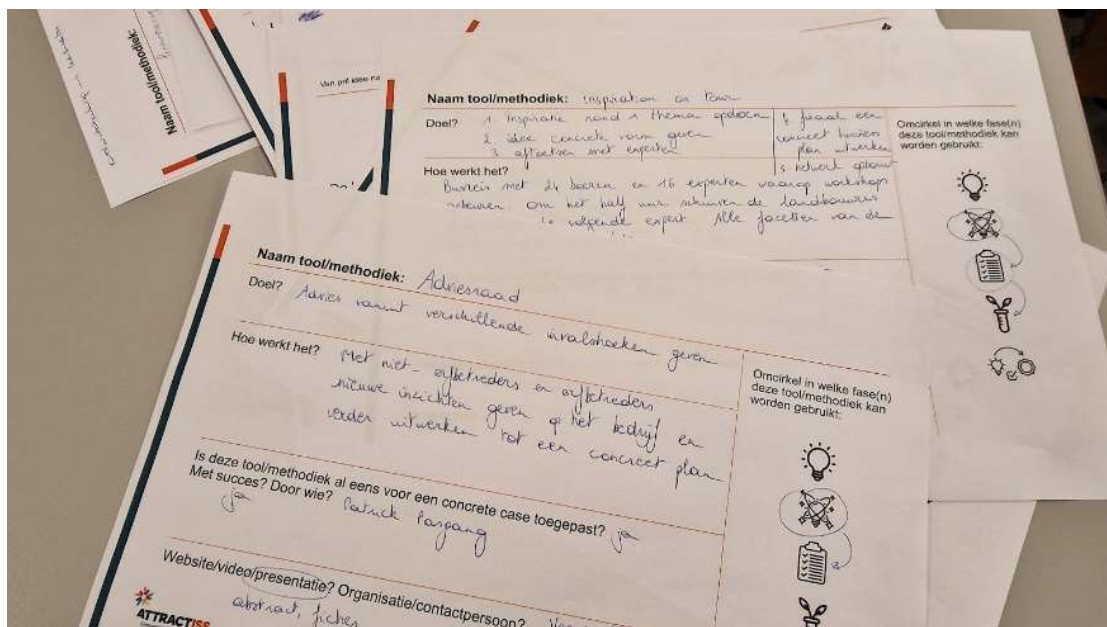 Naam tool/methodiek:
Van pril idee na
Naam tool/methodiek: inspiration on tour
Doel? 1. Inspiratie rond 1 thema opdoen
2. idee concrete vorm geven
3. aftoetsen met experten
finaal een
concreet business
plan uitwerken
netwerk opbouw
Hoe werkt het?
Busreis met 24 boeren en 16 experten waarop workshops
gebeuren. Om het half uur schuiven de landbouwers
volgende expert. Alle facetten van de
Omcirkel in welke fase(n)
deze tool/methodiek kan
worden gebruikt:
Naam tool/methodiek: Adviesraad
Doel? Advies vanuit verschillende invalshoeken geven
Hoe werkt het? Met niet-erfbetreders en erfbetreders
nieuwe inzichten geven op het bedrijf en
verder uitwerken tot een concreet plan
Is deze tool/methodiek al eens voor een concrete case toegepast? ja
Met succes? Door wie? Patrick Pasgang
ja
Website/video/presentatie? Organisatie/contactpersoon?
abstract, fiches
Omcirkel in welke fase(n)
deze tool/methodiek kan
worden gebruikt:
ATTRACTISS